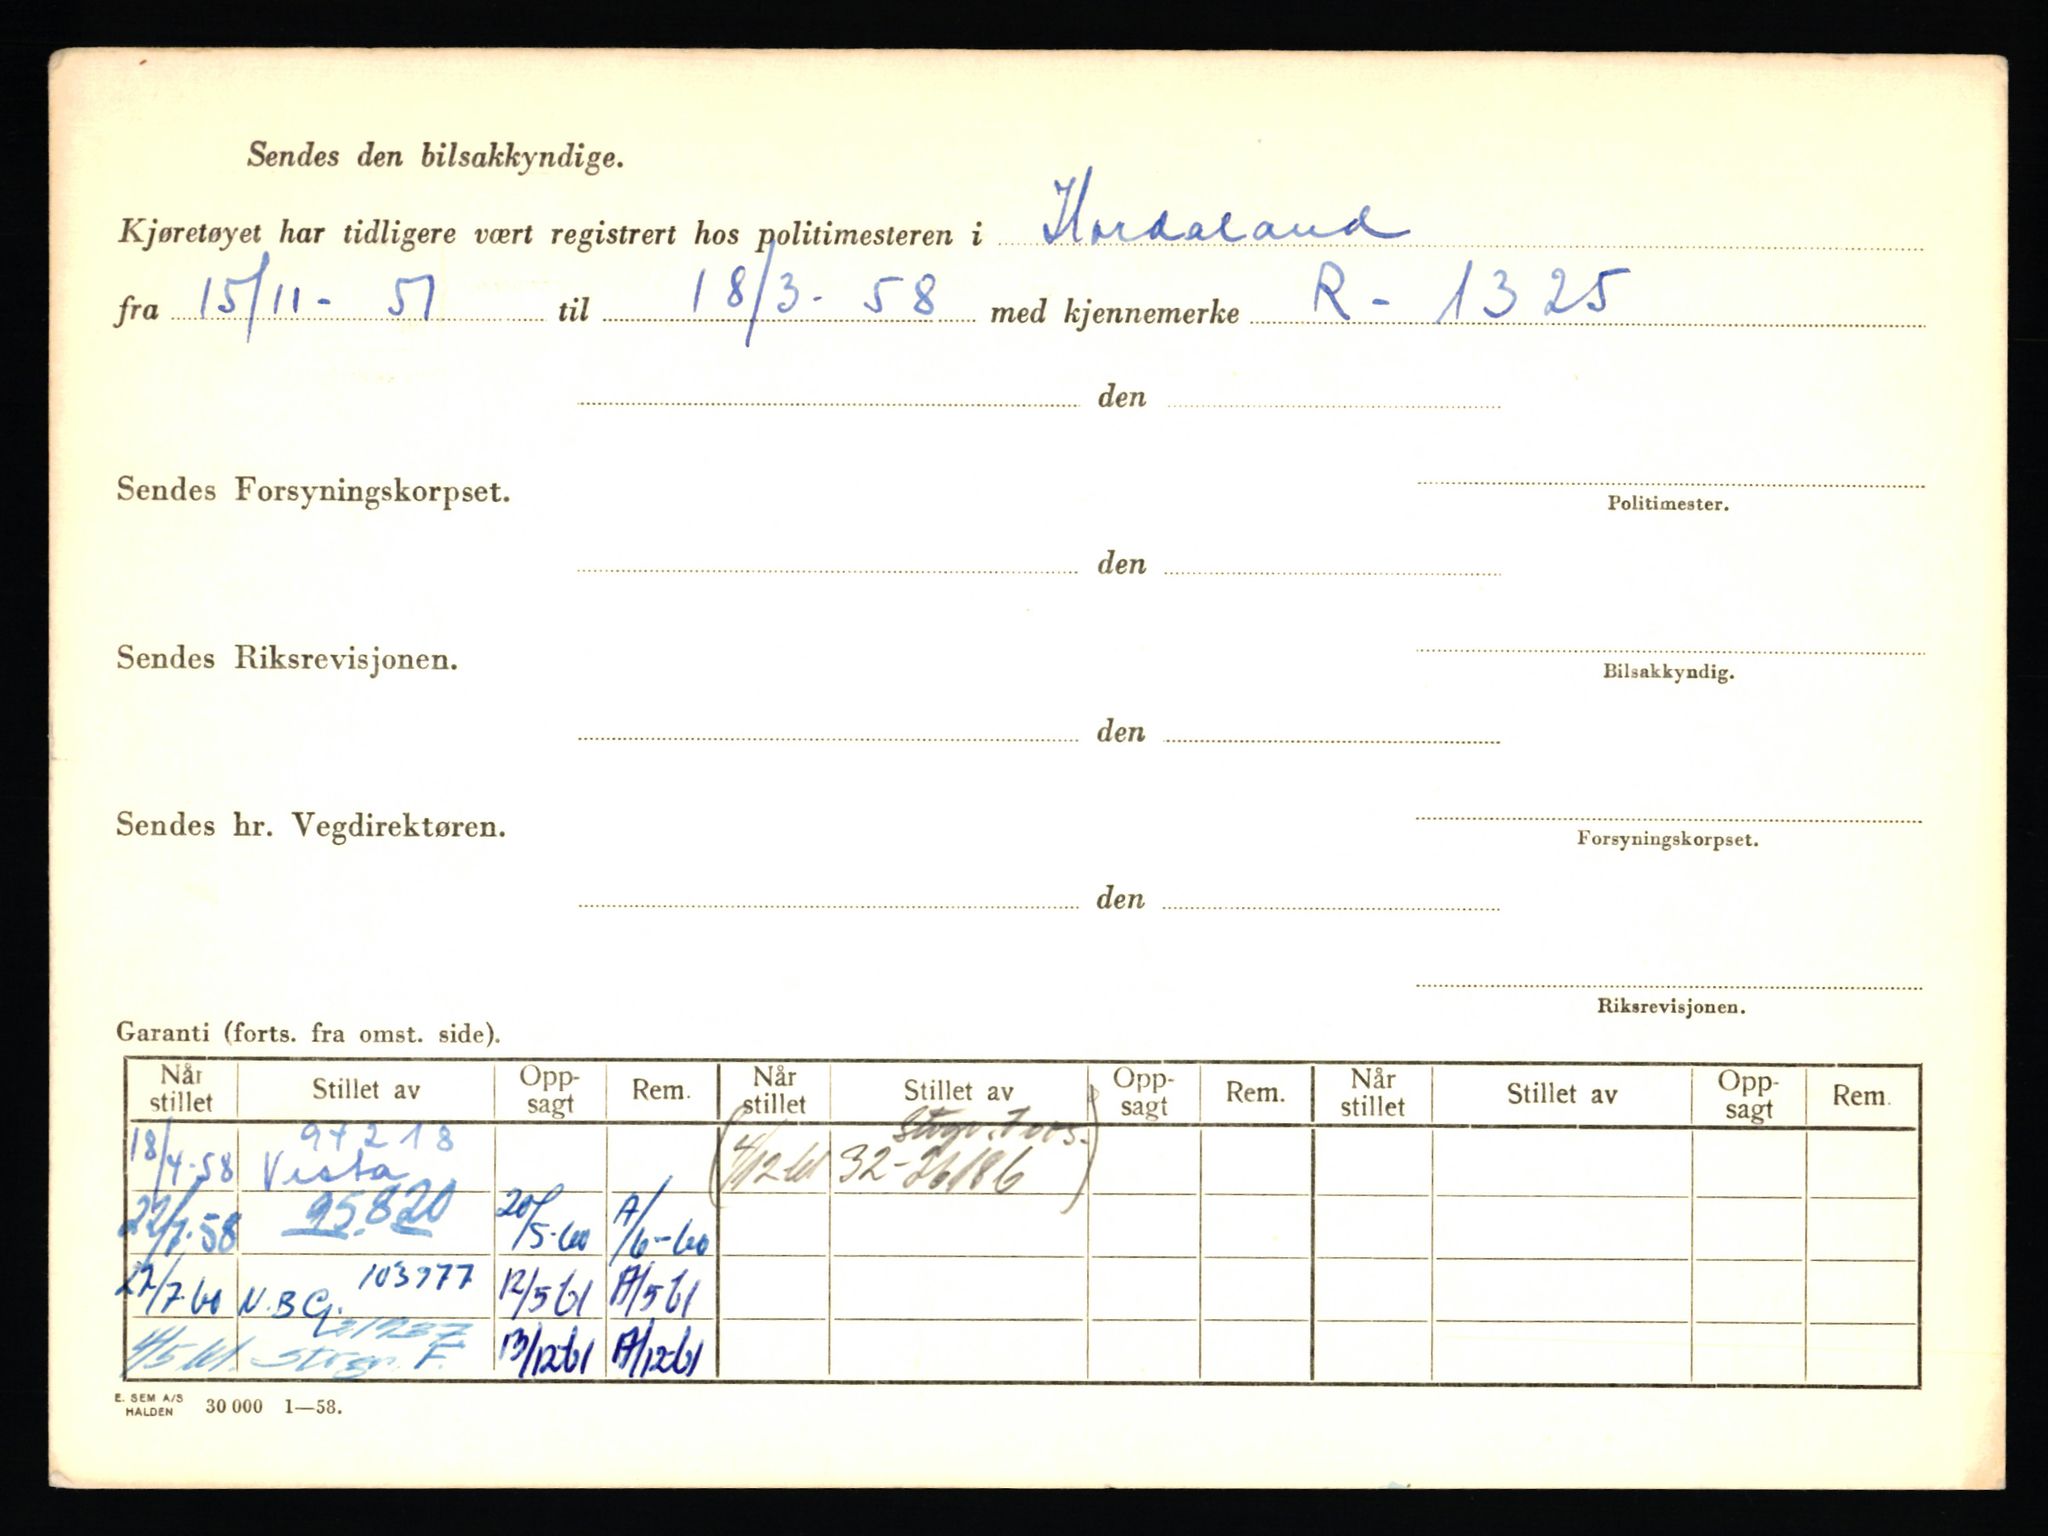 Sendes den bilsakkyndige.
Kjøretøyet har tidligere vært registrert hos politimesteren i Hordaland
fra 15/11 - 51 til 18/3 - 58 med kjennemerke R - 1325
den
Sendes Forsyningskorpset.
Politimester.
den
Sendes Riksrevisjonen.
Bilsakkyndig.
den
Sendes hr. Vegdirektøren.
Forsyningskorpset.
den
Riksrevisjonen.
Garanti (forts. fra omst. side).
Når stillet Stillet av Opp-sagt Rem. Når stillet Stillet av Opp-sagt Rem. Når stillet Stillet av Opp-sagt Rem.
97218
18/4-58 Vesta
22/7-58 95820 20/5-60 A/6-60
27/7 60 N.B.G. 103977 12/5 61 A/5 61
Storgr. F. 13/12-61 A/12-61
(4/12 61 32-26186)
E. SEM A/S
HALDEN 30 000 1—58.